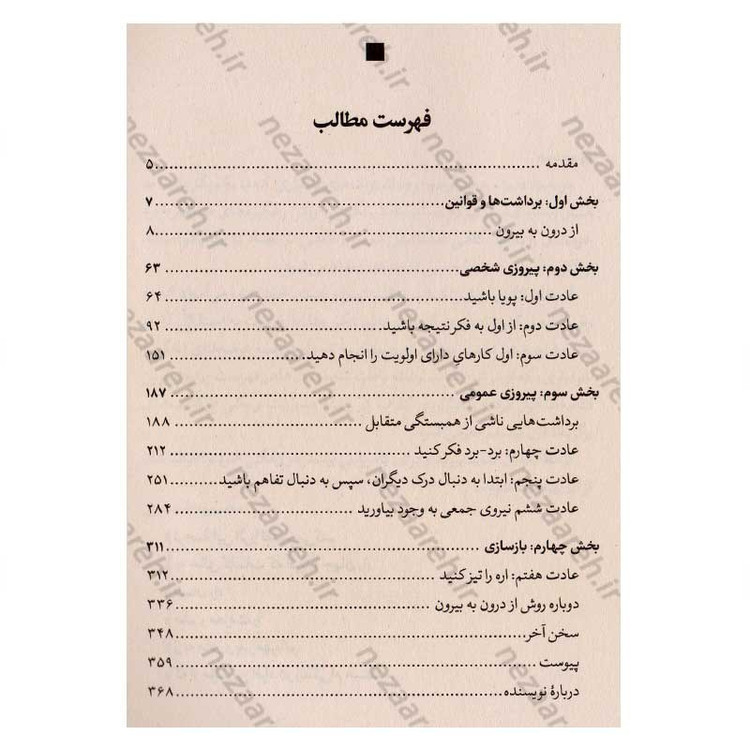 فهرست مطالب
مقدمه ........ ۵
بخش اول: برداشت‌ها و قوانین ........ ۷
از درون به بیرون ........ ۸
بخش دوم: پیروزی شخصی ........ ۶۳
عادت اول: پویا باشید ........ ۶۴
عادت دوم: از اول به فکر نتیجه باشید ........ ۹۲
عادت سوم: اول کارهایِ دارای اولویت را انجام دهید ........ ۱۵۱
بخش سوم: پیروزی عمومی ........ ۱۸۷
برداشت‌هایی ناشی از همبستگی متقابل ........ ۱۸۸
عادت چهارم: برد-برد فکر کنید ........ ۲۱۲
عادت پنجم: ابتدا به دنبال درک دیگران، سپس به دنبال تفاهم باشید ........ ۲۵۱
عادت ششم نیروی جمعی به وجود بیاورید ........ ۲۸۴
بخش چهارم: بازسازی ........ ۳۱۱
عادت هفتم: اره را تیز کنید ........ ۳۱۲
دوباره روش از درون به بیرون ........ ۳۳۶
سخن آخر ........ ۳۴۸
پیوست ........ ۳۵۹
دربارهٔ نویسنده ........ ۳۶۸
nezaareh.ir